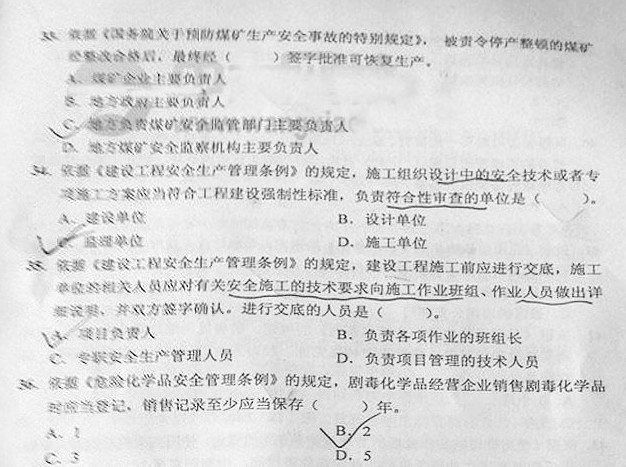 33. 依据《国务院关于预防煤矿生产安全事故的特别规定》，被责令停产整顿的煤矿
经整改合格后，最终经（　　）签字批准可恢复生产。
A. 煤矿企业主要负责人
B. 地方政府主要负责人
C. 地方负责煤矿安全监管部门主要负责人
D. 地方煤矿安全监察机构主要负责人
34. 依据《建设工程安全生产管理条例》的规定，施工组织设计中的安全技术或者专
项施工方案应当符合工程建设强制性标准，负责符合性审查的单位是（　　）。
A. 建设单位　　B. 设计单位
C. 监理单位　　D. 施工单位
35. 依据《建设工程安全生产管理条例》的规定，建设工程施工前应进行交底，施工
单位的相关人员应对有关安全施工的技术要求向施工作业班组、作业人员做出详
细说明，并双方签字确认。进行交底的人员是（　　）。
A. 项目负责人　　B. 负责各项作业的班组长
C. 专职安全生产管理人员　　D. 负责项目管理的技术人员
36. 依据《危险化学品安全管理条例》的规定，剧毒化学品经营企业销售剧毒化学品
时应当登记，销售记录至少应当保存（　　）年。
A. 1　　B. 2
C. 3　　D. 5